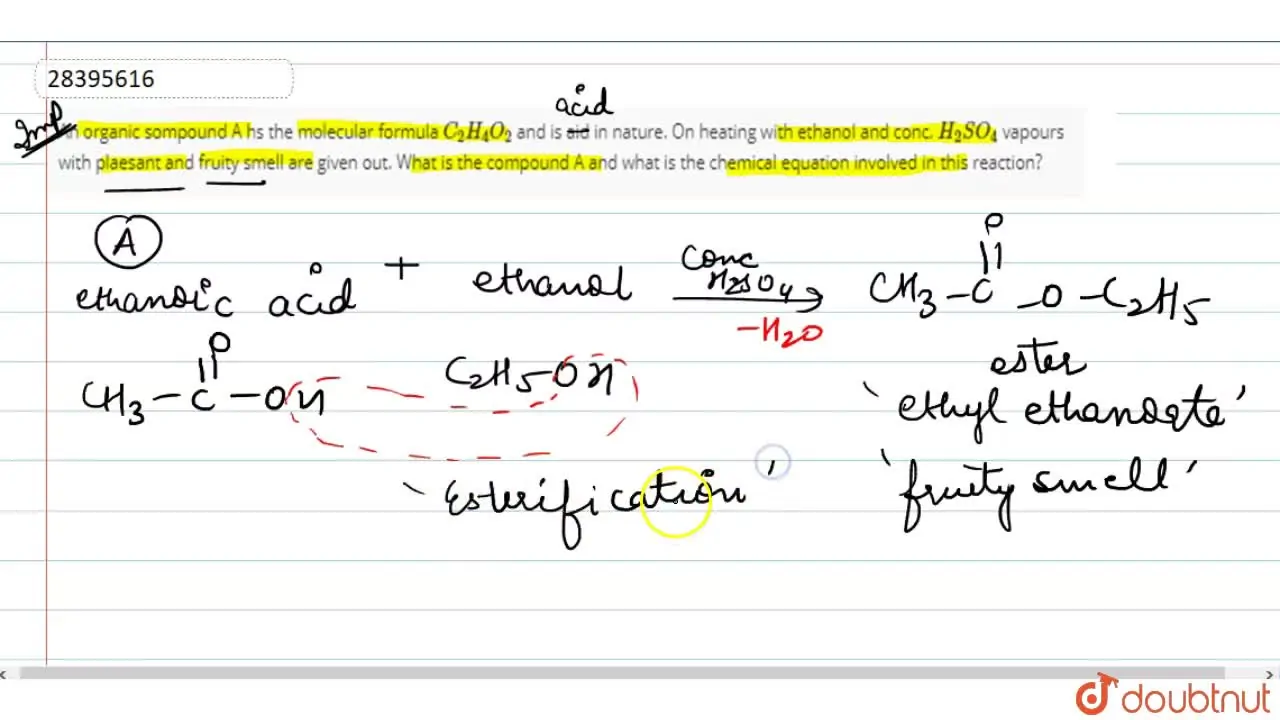 28395616
acid
Imp
An organic sompound A hs the molecular formula C₂H₄O₂ and is aid in nature. On heating with ethanol and conc. H₂SO₄ vapours
with plaesant and fruity smell are given out. What is the compound A and what is the chemical equation involved in this reaction?
A
ethanoic acid + ethanol
Conc
H2SO4
-H2O
O
CH3-C-O-C2H5
O
CH3-C-OH
C2H5-OH
ester
'ethyl ethanoate'
'Esterification'
'fruity smell'
doubtnut